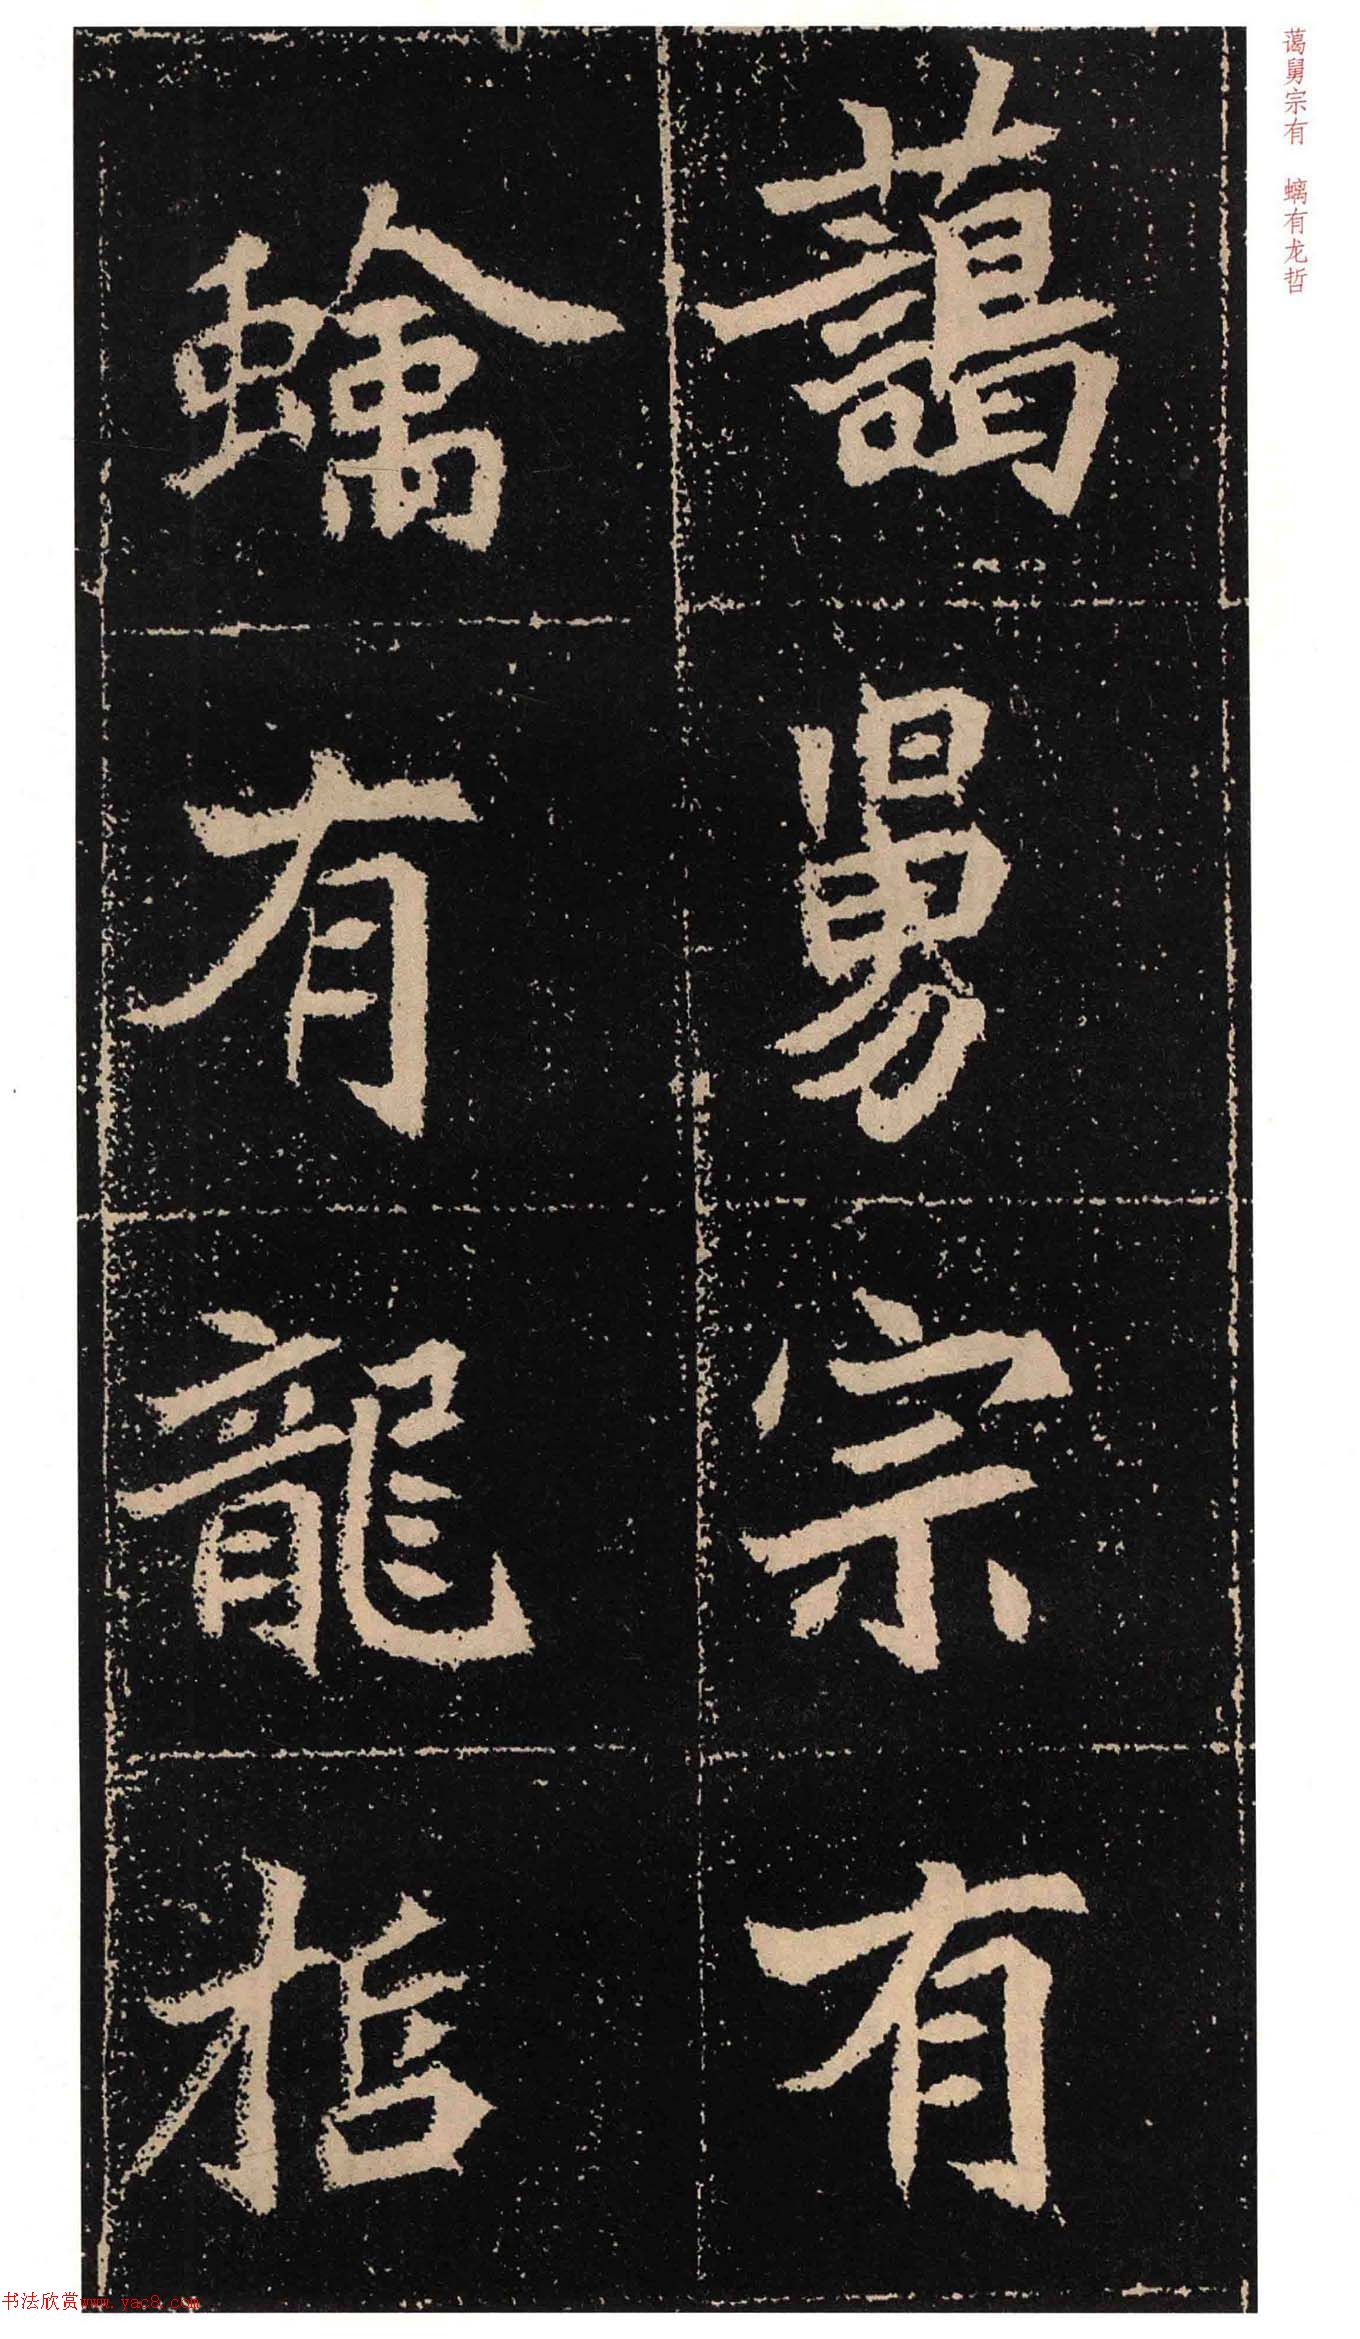 蔼舅宗有 螭有龙哲
藹舅宗有
螭有龍哲
书法欣赏www.yac8.com